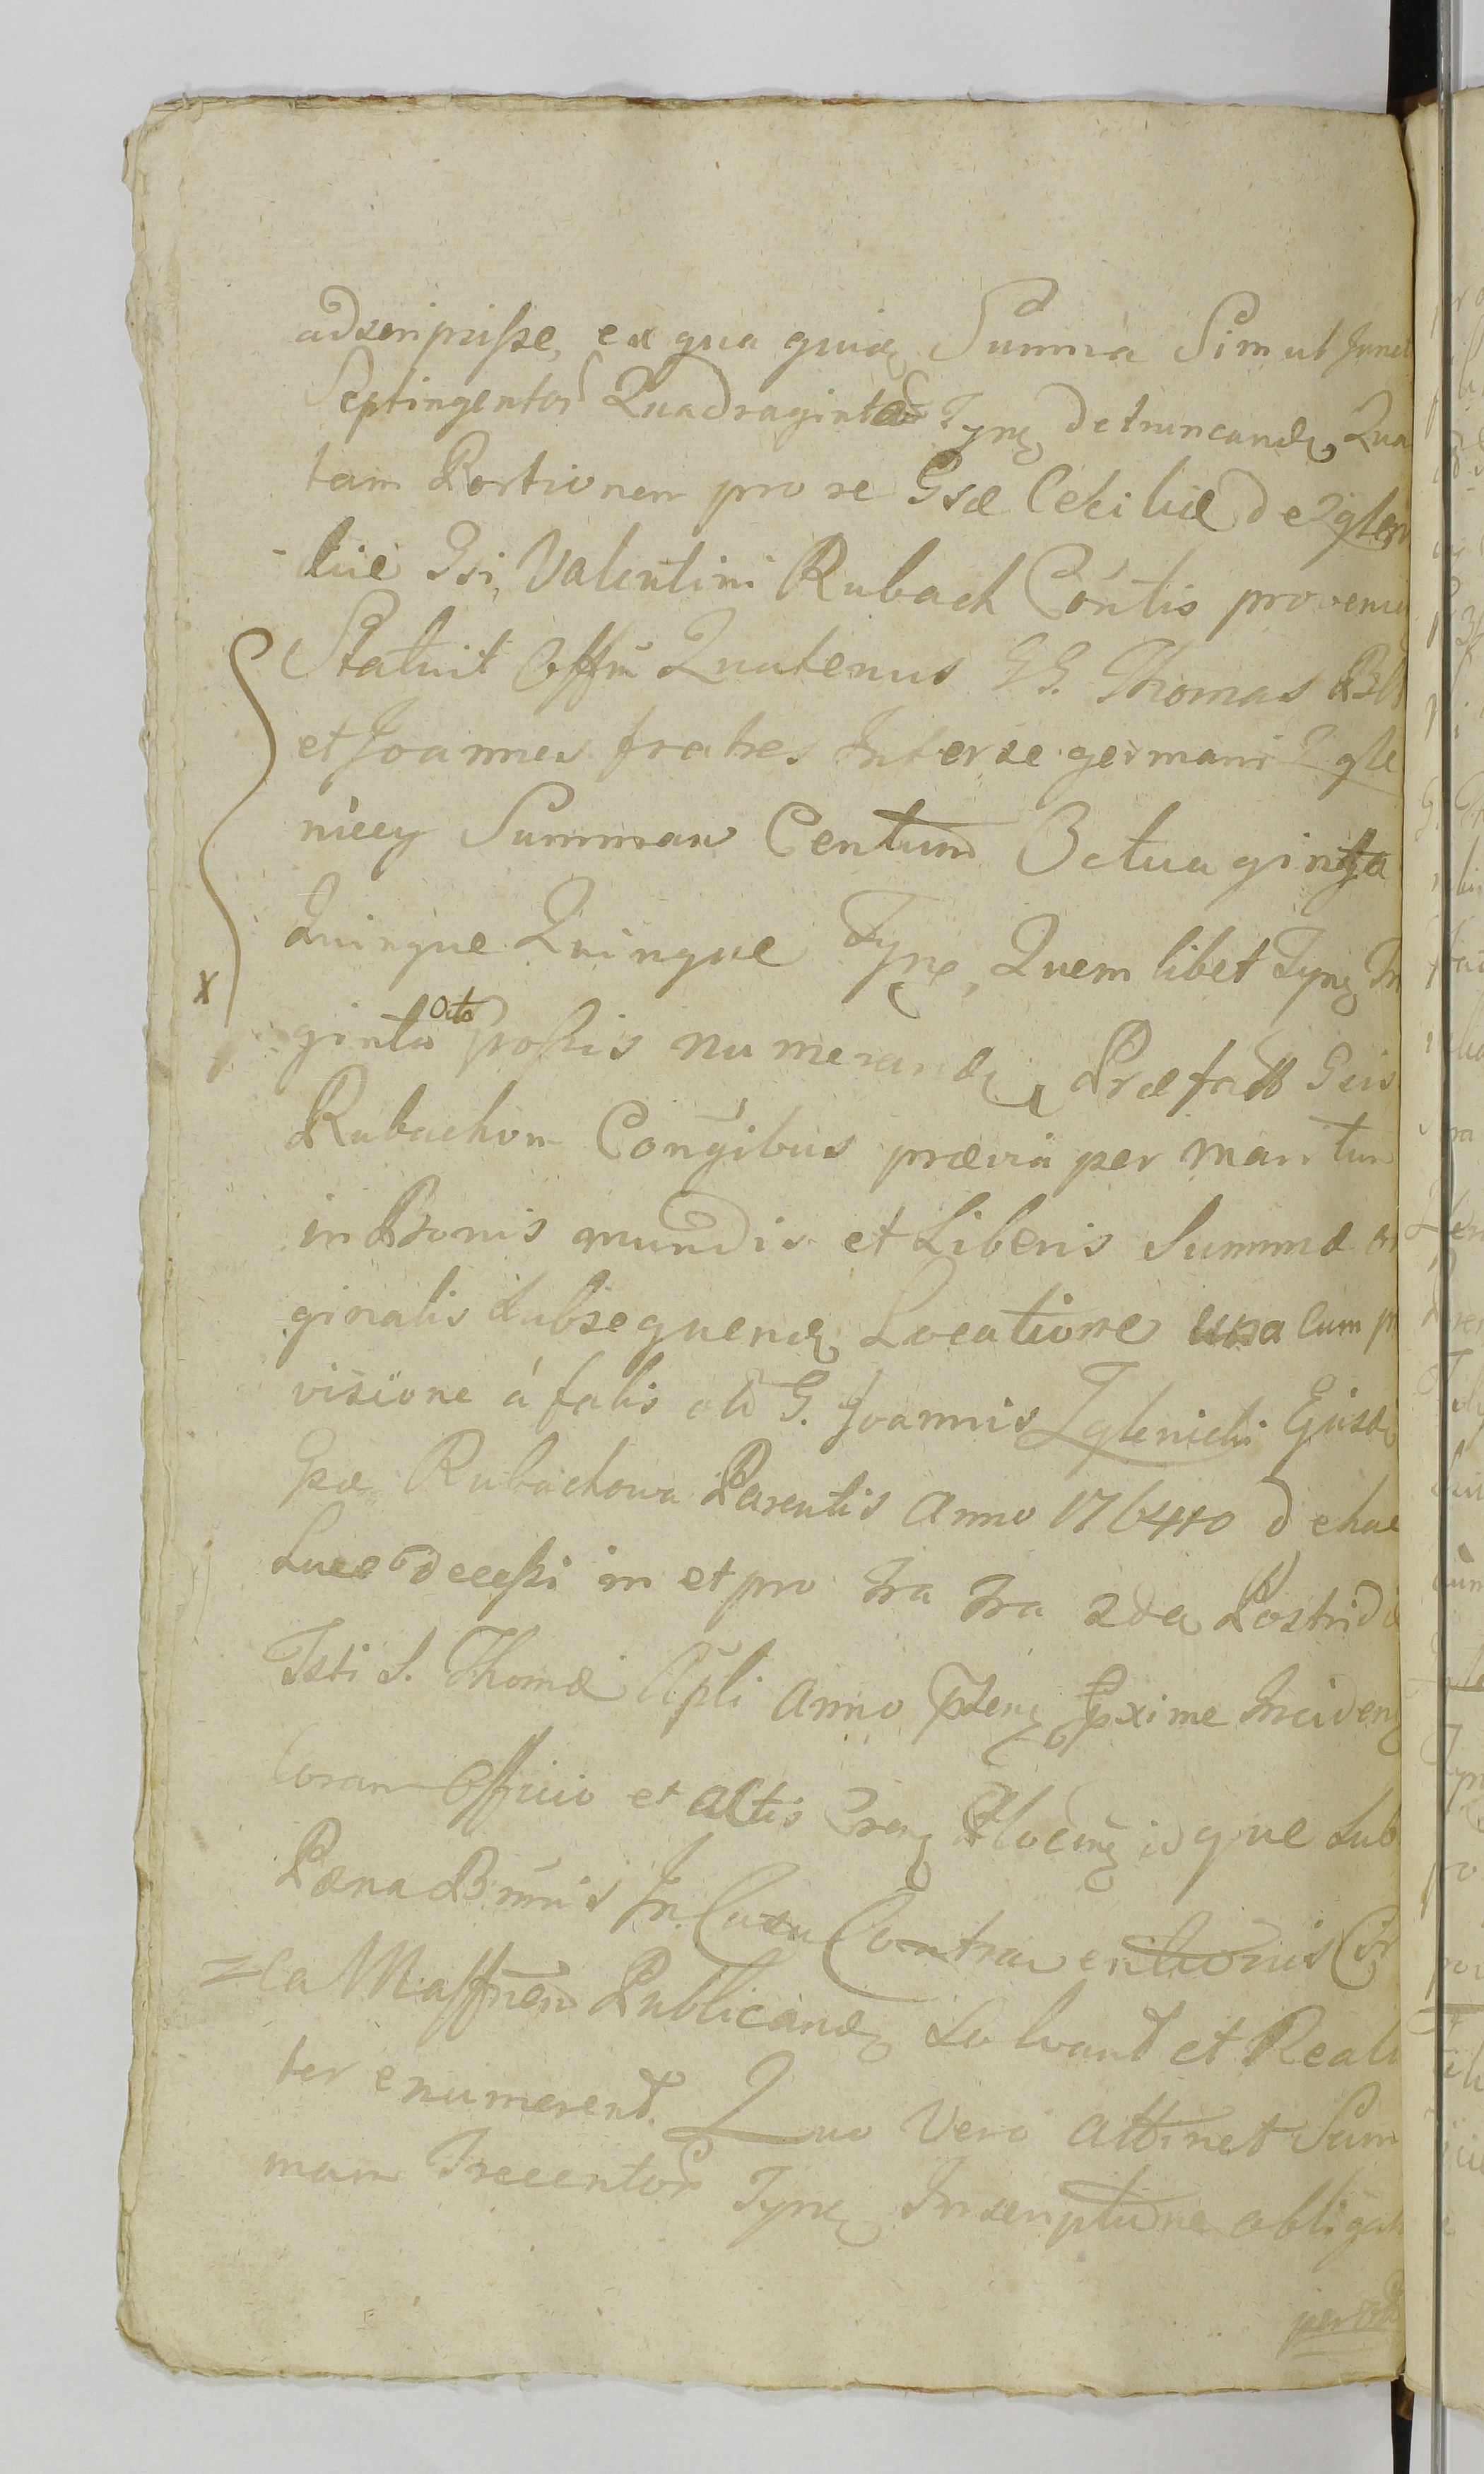 adscripsisse, ex qua quidę Summa Simul Junct
Septingentor Quadraginta Tynę detruncandę, Qua
tam Portionem pro se Gsæ Ceciliæ de Zglen
-kie Gsi, Valentini Rubach Cońtis provenię
Statuit Offm Quatenus GG. Thomas
et Joannes fratres Inter se germani Zgle
niccy Summam Centum Octuaginta
Quinque Quinque Tynę, Quem libet Tynę Tri
ginta Octo grossis numerandę Præfatt Gsis
Rubachom Coniugibus prævia per maritum
in Bonis mundis et Liberis Summæ ori
ginalis Subsequendę Locatione una Cum pr
visione á fatis olim G. Joannis Zglenicki Ejusdę
Gsæ Rubachowa Parentis Anno 1764to de hac
Luce decessi in et pro fra fra 2da Postridie
Fsti S. Thomæ Apli Anno pstenę pxime Incidenę
Coram Officio et Actis Cren Plocenę idque Sub
Pœna Bnnis In Casu Contraventionis
=ca Maffnem Publicandę Solvant et Reali
ter enumerent. Quo Vero attinet Sum
mam Trecentor Tynę Inscriptione obligat